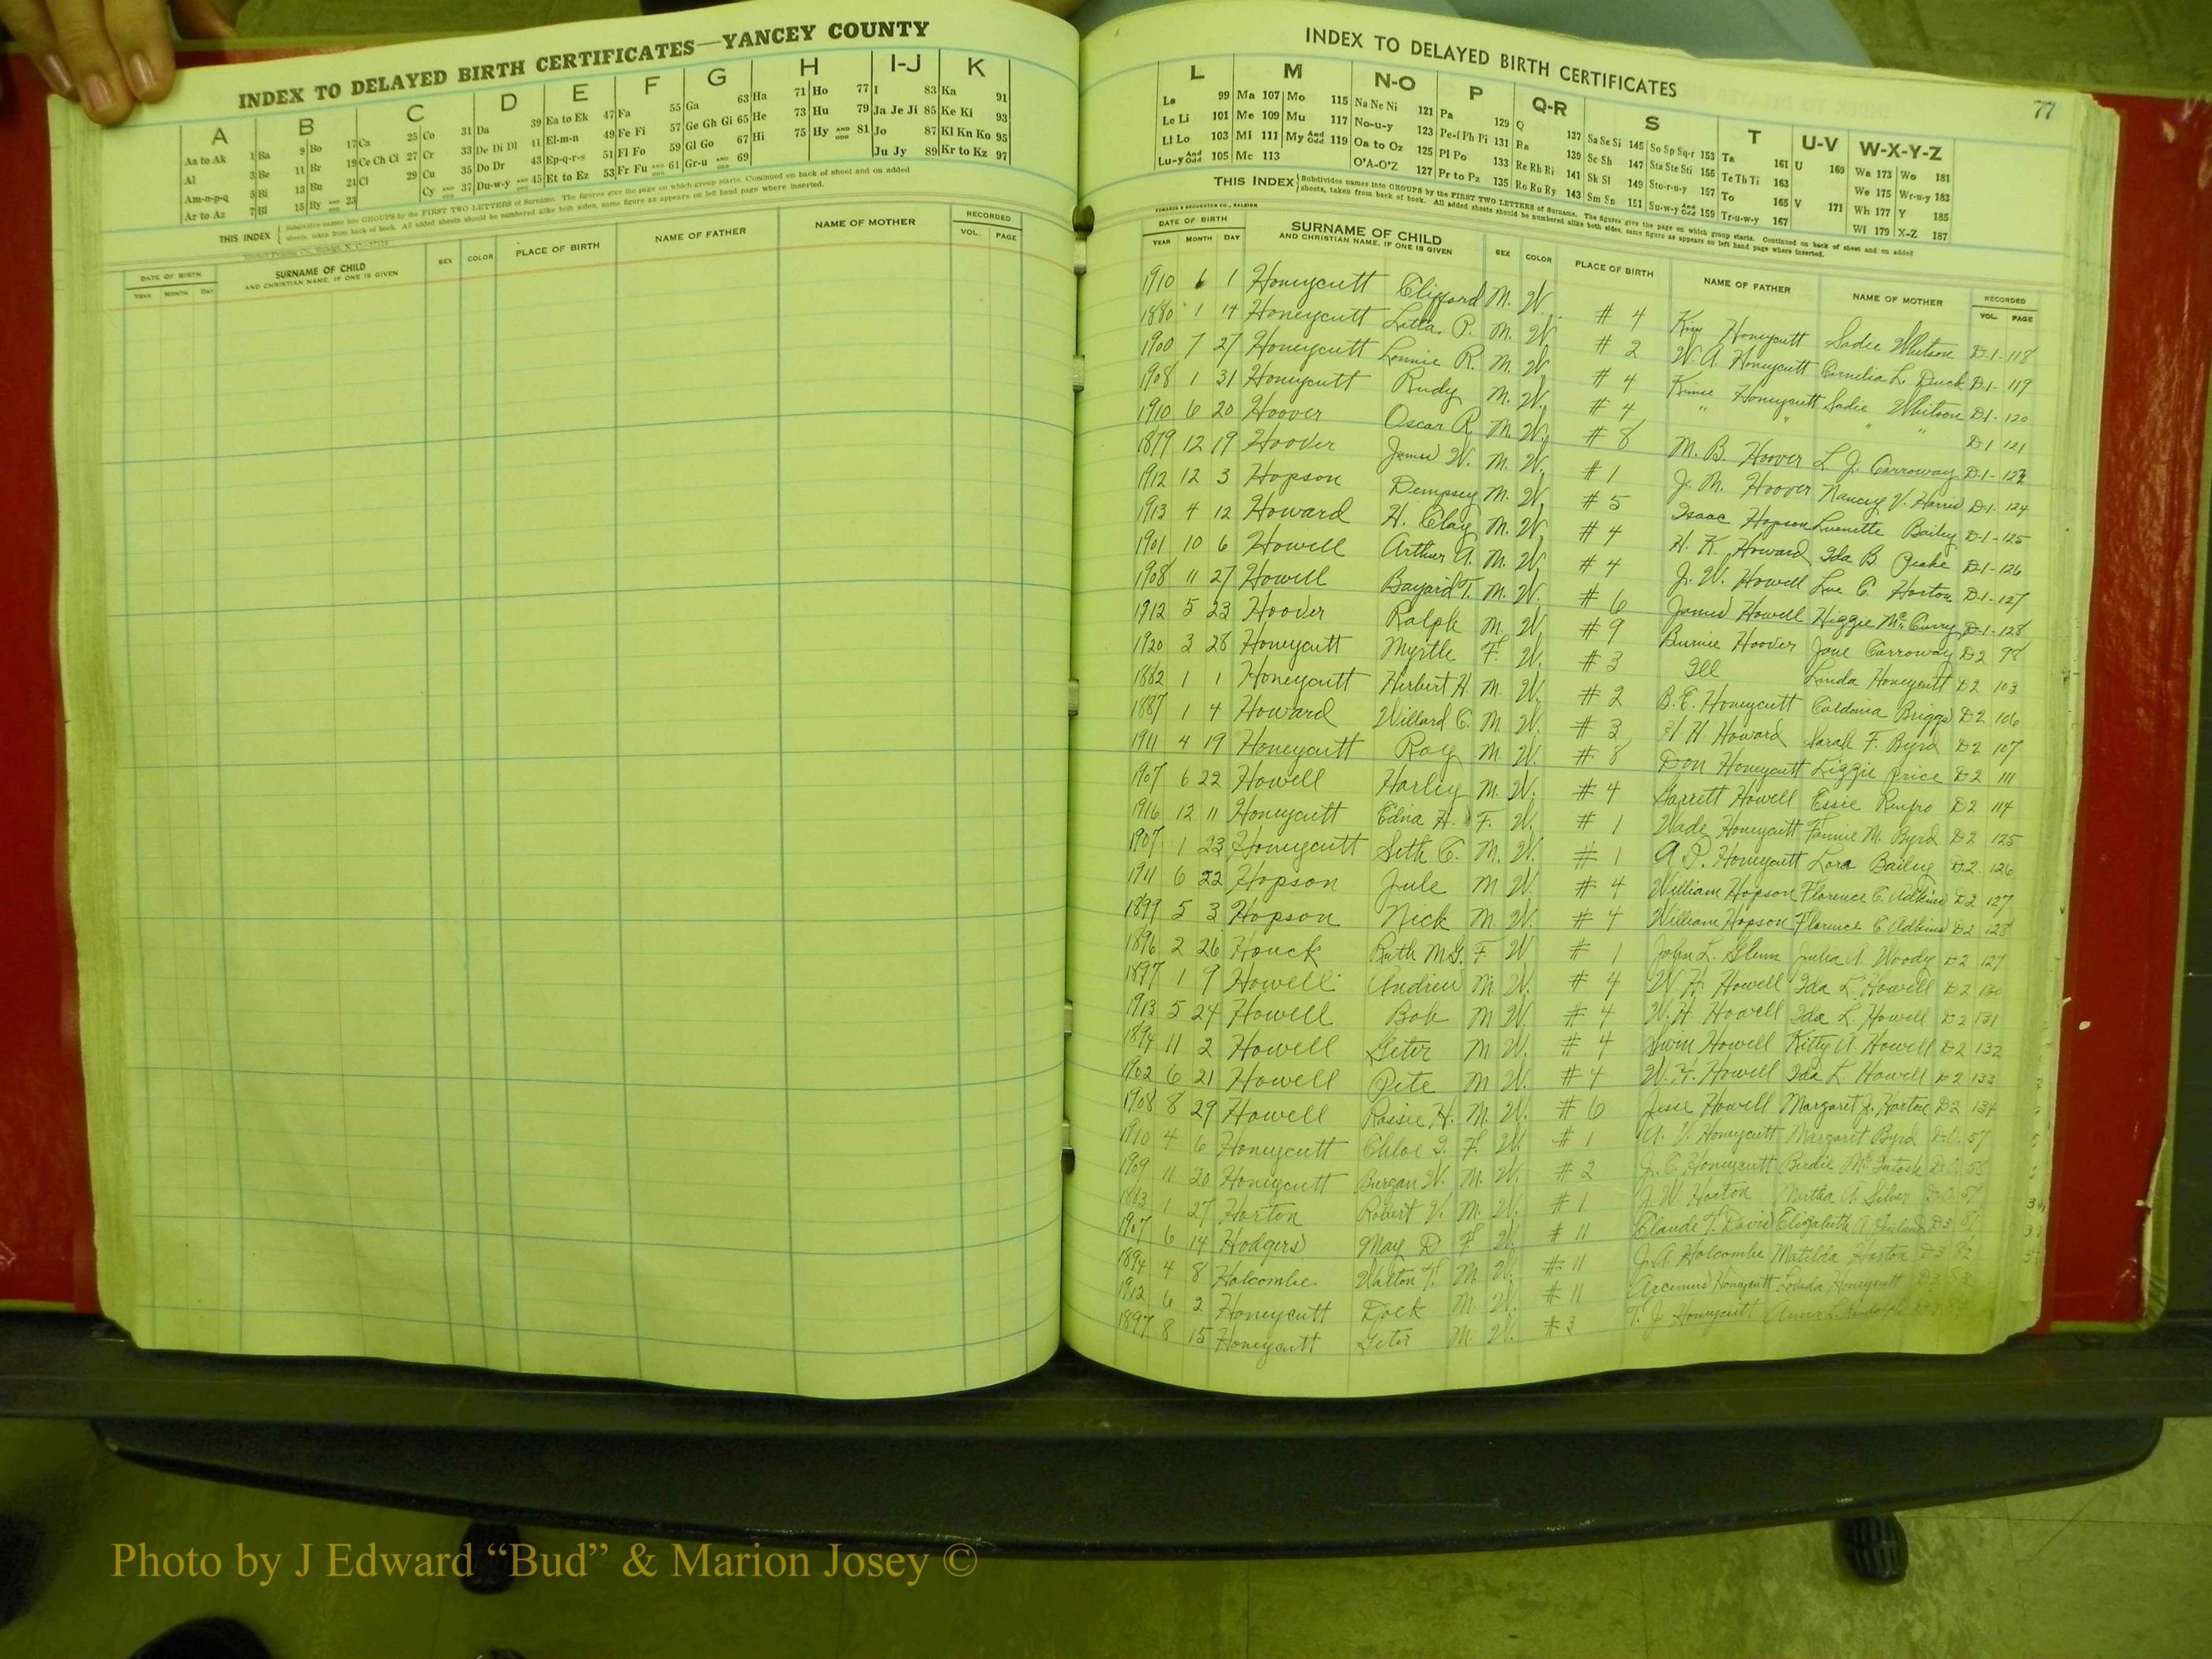 INDEX TO DELAYED BIRTH CERTIFICATES—YANCEY COUNTY
A B C D E F G H I-J K
Aa to Ak 1 Ba 9 Bo 17 Ca 25 Co 31 Da 39 Ea to Ek 47 Fa 55 Ga 63 Ha 71 Ho 77 I 83 Ka 91
Al 3 Be 11 Br 19 Ce Ch Ci 27 Cr 33 De Di Dl 41 El-m-n 49 Fe Fi 57 Ge Gh Gi 65 He 73 Hu 79 Ja Je Ji 85 Ke Ki 93
Am-n-p-q 5 Bi 13 Bu 21 Cl 29 Cu 35 Do Dr 43 Ep-q-r-s 51 Fl Fo 59 Gl Go 67 Hi 75 Hy AND ODD 81 Jo 87 Kl Kn Ko 95
Ar to Az 7 Bl 15 By AND ODD 23 Cy AND ODD 37 Du-w-y AND ODD 45 Et to Ez 53 Fr Fu AND ODD 61 Gr-u AND ODD 69 Ju Jy 89 Kr to Kz 97
THIS INDEX { Subdivides names into GROUPS by the FIRST TWO LETTERS of Surname. The figures give the page on which group starts. Continued on back of sheet and on added
sheets, taken from back of book. All added sheets should be numbered alike both sides, same figure as appears on left hand page where inserted.
DATE OF BIRTH SURNAME OF CHILD SEX COLOR PLACE OF BIRTH NAME OF FATHER NAME OF MOTHER RECORDED
YEAR MONTH DAY AND CHRISTIAN NAME, IF ONE IS GIVEN VOL. PAGE
INDEX TO DELAYED BIRTH CERTIFICATES
77
L M N-O P Q-R S T U-V W-X-Y-Z
La 99 Ma 107 Mo 115 Na Ne Ni 121 Pa 129 Q 137 Sa Se Si 145 So Sp Sq-r 153 Ta 161 U 169 Wa 173 Wo 181
Le Li 101 Me 109 Mu 117 No-u-y 123 Pe-f Ph Pi 131 Ra 139 Sc Sh 147 Sta Ste Sti 155 Te Th Ti 163 We 175 Wr-u-y 183
Ll Lo 103 Mi 111 My And Odd 119 Oa to Oz 125 Pl Po 133 Re Rh Ri 141 Sk Sl 149 Sto-r-u-y 157 To 165 V 171 Wh 177 Y 185
Lu-y And Odd 105 Mc 113 O'A-O'Z 127 Pr to Pz 135 Ro Ru Ry 143 Sm Sn 151 Su-w-y And Odd 159 Tr-u-w-y 167 Wi 179 X-Z 187
THIS INDEX { Subdivides names into GROUPS by the FIRST TWO LETTERS of Surname. The figures give the page on which group starts. Continued on back of sheet and on added
sheets, taken from back of book. All added sheets should be numbered alike both sides, same figure as appears on left hand page where inserted.
EDWARDS & BROUGHTON CO., RALEIGH
DATE OF BIRTH SURNAME OF CHILD SEX COLOR PLACE OF BIRTH NAME OF FATHER NAME OF MOTHER RECORDED
YEAR MONTH DAY AND CHRISTIAN NAME, IF ONE IS GIVEN VOL. PAGE
1910 6 1 Honeycutt Clifford M. W. # 4 Honeycutt Sadie Whitson D-1-118
1880 1 14 Honeycutt P. M. W. # 2 W. A. Honeycutt Cornelia L. Buck D-1-119
1900 7 27 Honeycutt Lonnie R. M. W. # 4 Honeycutt Sadie Whitson D-1-120
1908 1 31 Honeycutt Rudy M. W. # 4 " " " " D-1 121
1910 6 20 Hoover Oscar R. M. W. # 8 M. B. Hoover L. J. Carroway D-1-
1879 12 19 Hoover James W. M. W. # 1 J. M. Hoover Nancy V. Harris D-1-124
1912 12 3 Hopson Dempsey M. W. # 5 Isaac Hopson Bailey D-1-125
1913 4 12 Howard H. Clay M. W. # 4 H. K. Howard Ida B. D-1-126
1901 10 6 Howell Arthur A. M. W. # 4 J. W. Howell C. Horton D-1-127
1908 11 27 Howell Bayard T. M. W. # 6 James Howell McCurry D-1-128
1912 5 23 Hoover Ralph M. W. # 9 Hoover Jane Carroway D2 98
1920 3 28 Honeycutt Myrtle F. W. # 3 Ill Linda Honeycutt D2 103
1882 1 1 Honeycutt Herbert H. M. W. # 2 B. E. Honeycutt Caldonia Briggs D2 106
1887 1 4 Howard Willard C. M. W. # 3 H Howard Sarah F. Byrd D2 107
1911 4 19 Honeycutt Roy M. W. # 8 Don Honeycutt Lizzie Price D2 111
1907 6 22 Howell Harley M. W. # 4 Garrett Howell Essie Renfro D2 114
1916 12 11 Honeycutt Edna H. F. W. # 1 Wade Honeycutt Fannie M. Byrd D2 125
1907 1 23 Honeycutt Seth C. M. W. # 1 A. P. Honeycutt Lora Bailey D2 126
1911 6 22 Hopson Jule M W. # 4 William Hopson Florence C. Adkins D2 127
1899 5 3 Hopson Nick M. W. # 4 William Hopson Florence C. Adkins D2 128
1896 2 26 Houck Ruth F. W # 1 John L. Glenn Julia A. Woody D2
1897 1 9 Howell Andrew M W. # 4 W. H. Howell Ida L. Howell D2 130
1913 5 24 Howell Bob M W. # 4 W. H. Howell Ida L. Howell D2 131
1894 11 2 Howell Geter M W. # 4 Howell Kitty A. Howell D2 132
1902 6 21 Howell Pete M W. # 4 W. H. Howell Ida L. Howell D2 133
1908 8 29 Howell H. M. W. # 6 Jesse Howell Margaret J. Horton D2 134
1910 4 6 Honeycutt Chloe F. W. # 1 A. V. Honeycutt Margaret Byrd 57
1909 11 20 Honeycutt Burgan W. M. W. # 2 J. C. Honeycutt Birdie McIntosh
1883 1 27 Horton Robert V. M. W. # 1 J. W. Horton A. Silver
1907 6 14 Hodgers May D F W. # 11 Claude T. Davis Elizabeth A. D3 81
1894 4 8 Holcombe Walton T. M. W. # 11 J. A. Holcombe Matilda Horton D3 82
1912 6 2 Honeycutt Dock M. W. # 11 Honeycutt Honeycutt
1897 8 15 Honeycutt Geter M. W. # 3 T. J. Honeycutt
Photo by J Edward “Bud” & Marion Josey ©